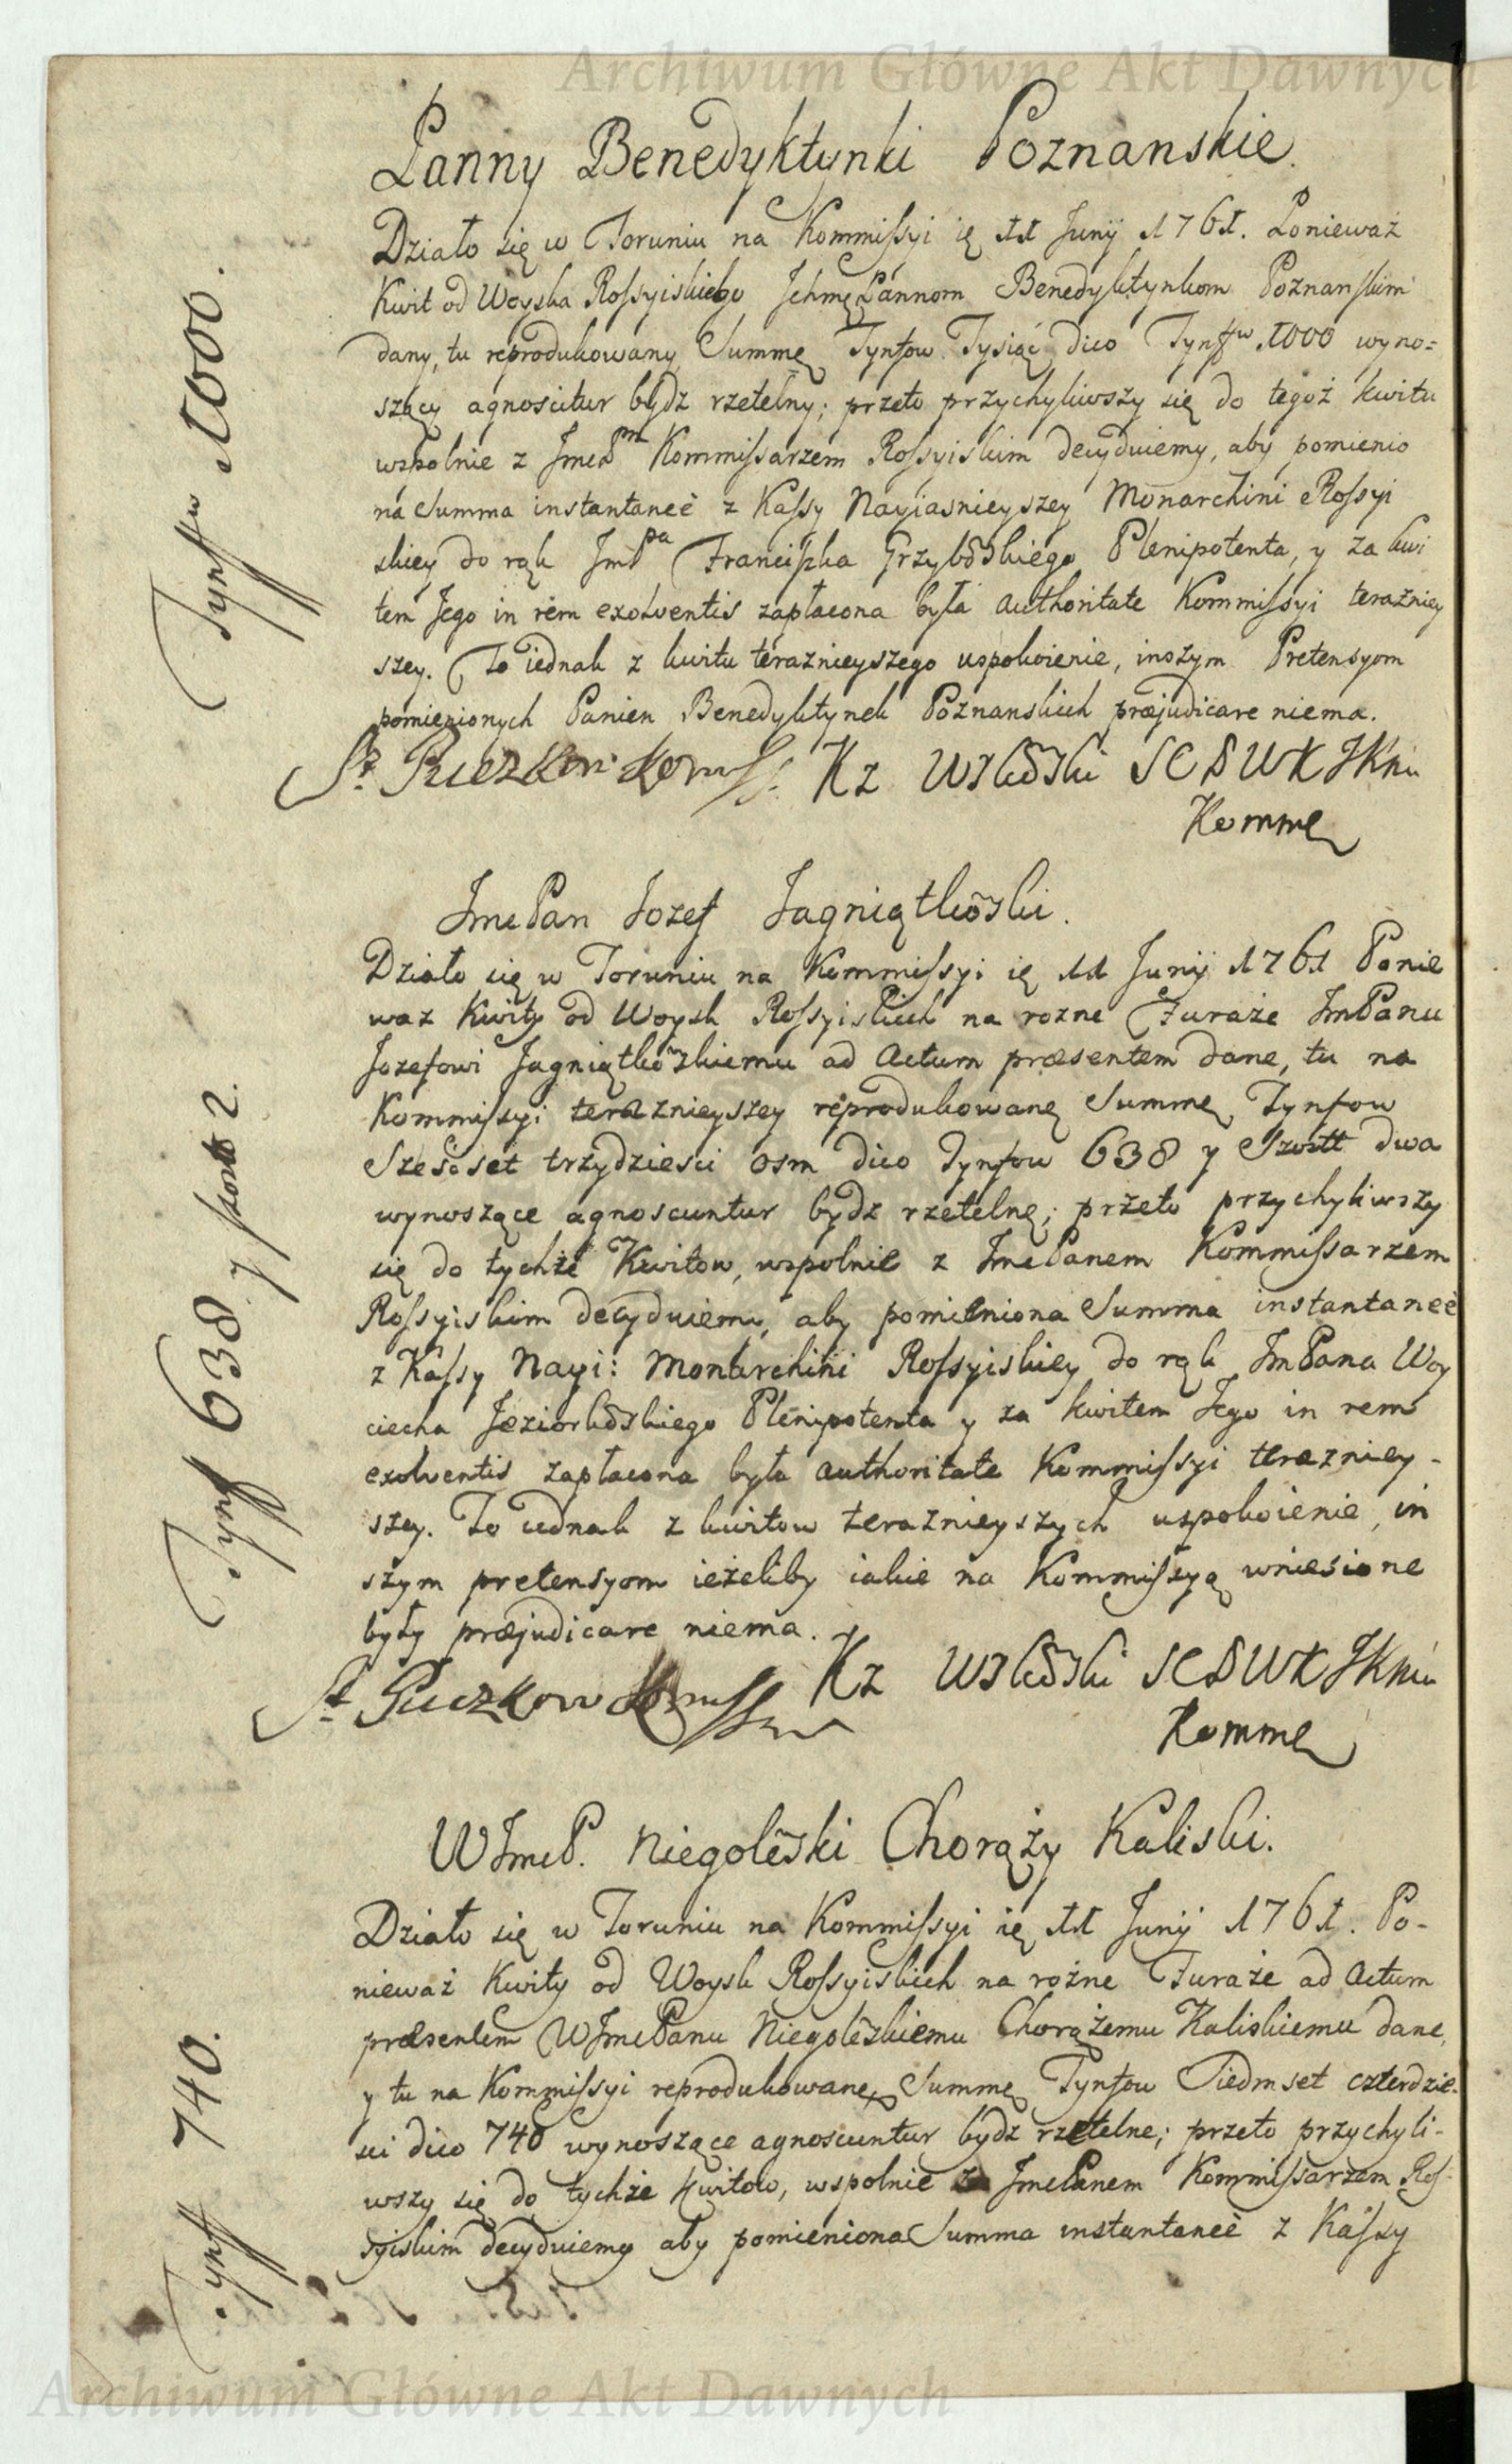 Archiwum Główne Akt Dawnych
Panny Benedyktynki Poznanskie.
Działo się w Toruniu na Kommissyi ię 11 Junij 1761. Ponieważ
Kwit od Woyska Rossyiskiego Jchmę Pannom Benedyktynkom Poznanskim
dany, tu reprodukowany Summę Tynfow Tysiąc dico Tynffw 1000 wyno=
szący agnoscitur bydz rzetelny; przeto przychyliwszy się do tegoż kwitu
wspolnie z JmcPm Kommissarzem Rossyiskim decyduiemy, aby pomienio
na Summa instantaneè z Kassy Nayiasnieyszey Monarchini Rossyi
skiey do rąk JmPpa Franciszka Grzybõskiego Plenipotenta, y za kwi
tem Jego in rem exolventis zapłacona była authoritate Kommissyi terazniey
szey. To iednak z kwitu teraznieyszego uspokoienie, inszym Pretensyom
pomienionych Panien Benedyktynek Poznanskich præjudicare niema.
Kz Wskõski SCDWKJKmu
Kommę
Tynffw 1000.
JmcPan Jozef Jagniątkõski.
Działo się w Toruniu na Kommissyi ię 11 Junij 1761 Ponie
waz Kwity od Woysk Rossyiskich na rozne Furaże JmPanu
Jozefowi Jagniątkõskiemu ad Actum præsentem dane, tu na
Kommissyi teraznieyszey reprodukowanę Summę Tynfow
Szescset trzydziesci osm dico Tynfow 638 y Szostt dwa
wynoszące agnoscuntur bydz rzetelnę; przeto przychyliwszy
się do tychże Kwitow, wspolnie z JmcPanem Kommissarzem
Rossyiskim decyduiemy, aby pomieniona Summa instantaneè
z Kassy Nayi: Monarchini Rossyiskiey do rąk JmPana Woy
ciecha Jeziorkõskiego Plenipotenta y za kwitem Jego in rem
exolventis zapłacona była authoritate Kommissyi terazniey-
szey. To iednak z kwitow teraznieyszych uspokoienie, in
szym pretensyom ieżeliby iakie na Kommissyą wniesione
były præjudicare niema.
Kz Wskõski SCDWKJKmu
Kommę
Tynff 638 y szost 2.
WJmcP. Niegolẽski Chorąży Kaliski.
Działo się w Toruniu na Kommissyi ię 11 Junij 1761. Po-
nieważ Kwity od Woysk Rossyiskich na rożne Furaże ad Actum
præsentem WJmcPanu Niegolẽskiemu Chorążemu Kaliskiemu dane,
y tu na Kommissyi reprodukowanę Summę Tynfow Siedmset czterdzie-
sci dico 740 wynoszące agnoscuntur bydz rzetelne; przeto przychyli-
wszy się do tychże kwitow, wspolnie z JmcPanem Kommissarzem Ros-
syiskim decyduiemy aby pomieniona Summa instantaneè z Kassy
Tynff 740.
Archiwum Główne Akt Dawnych